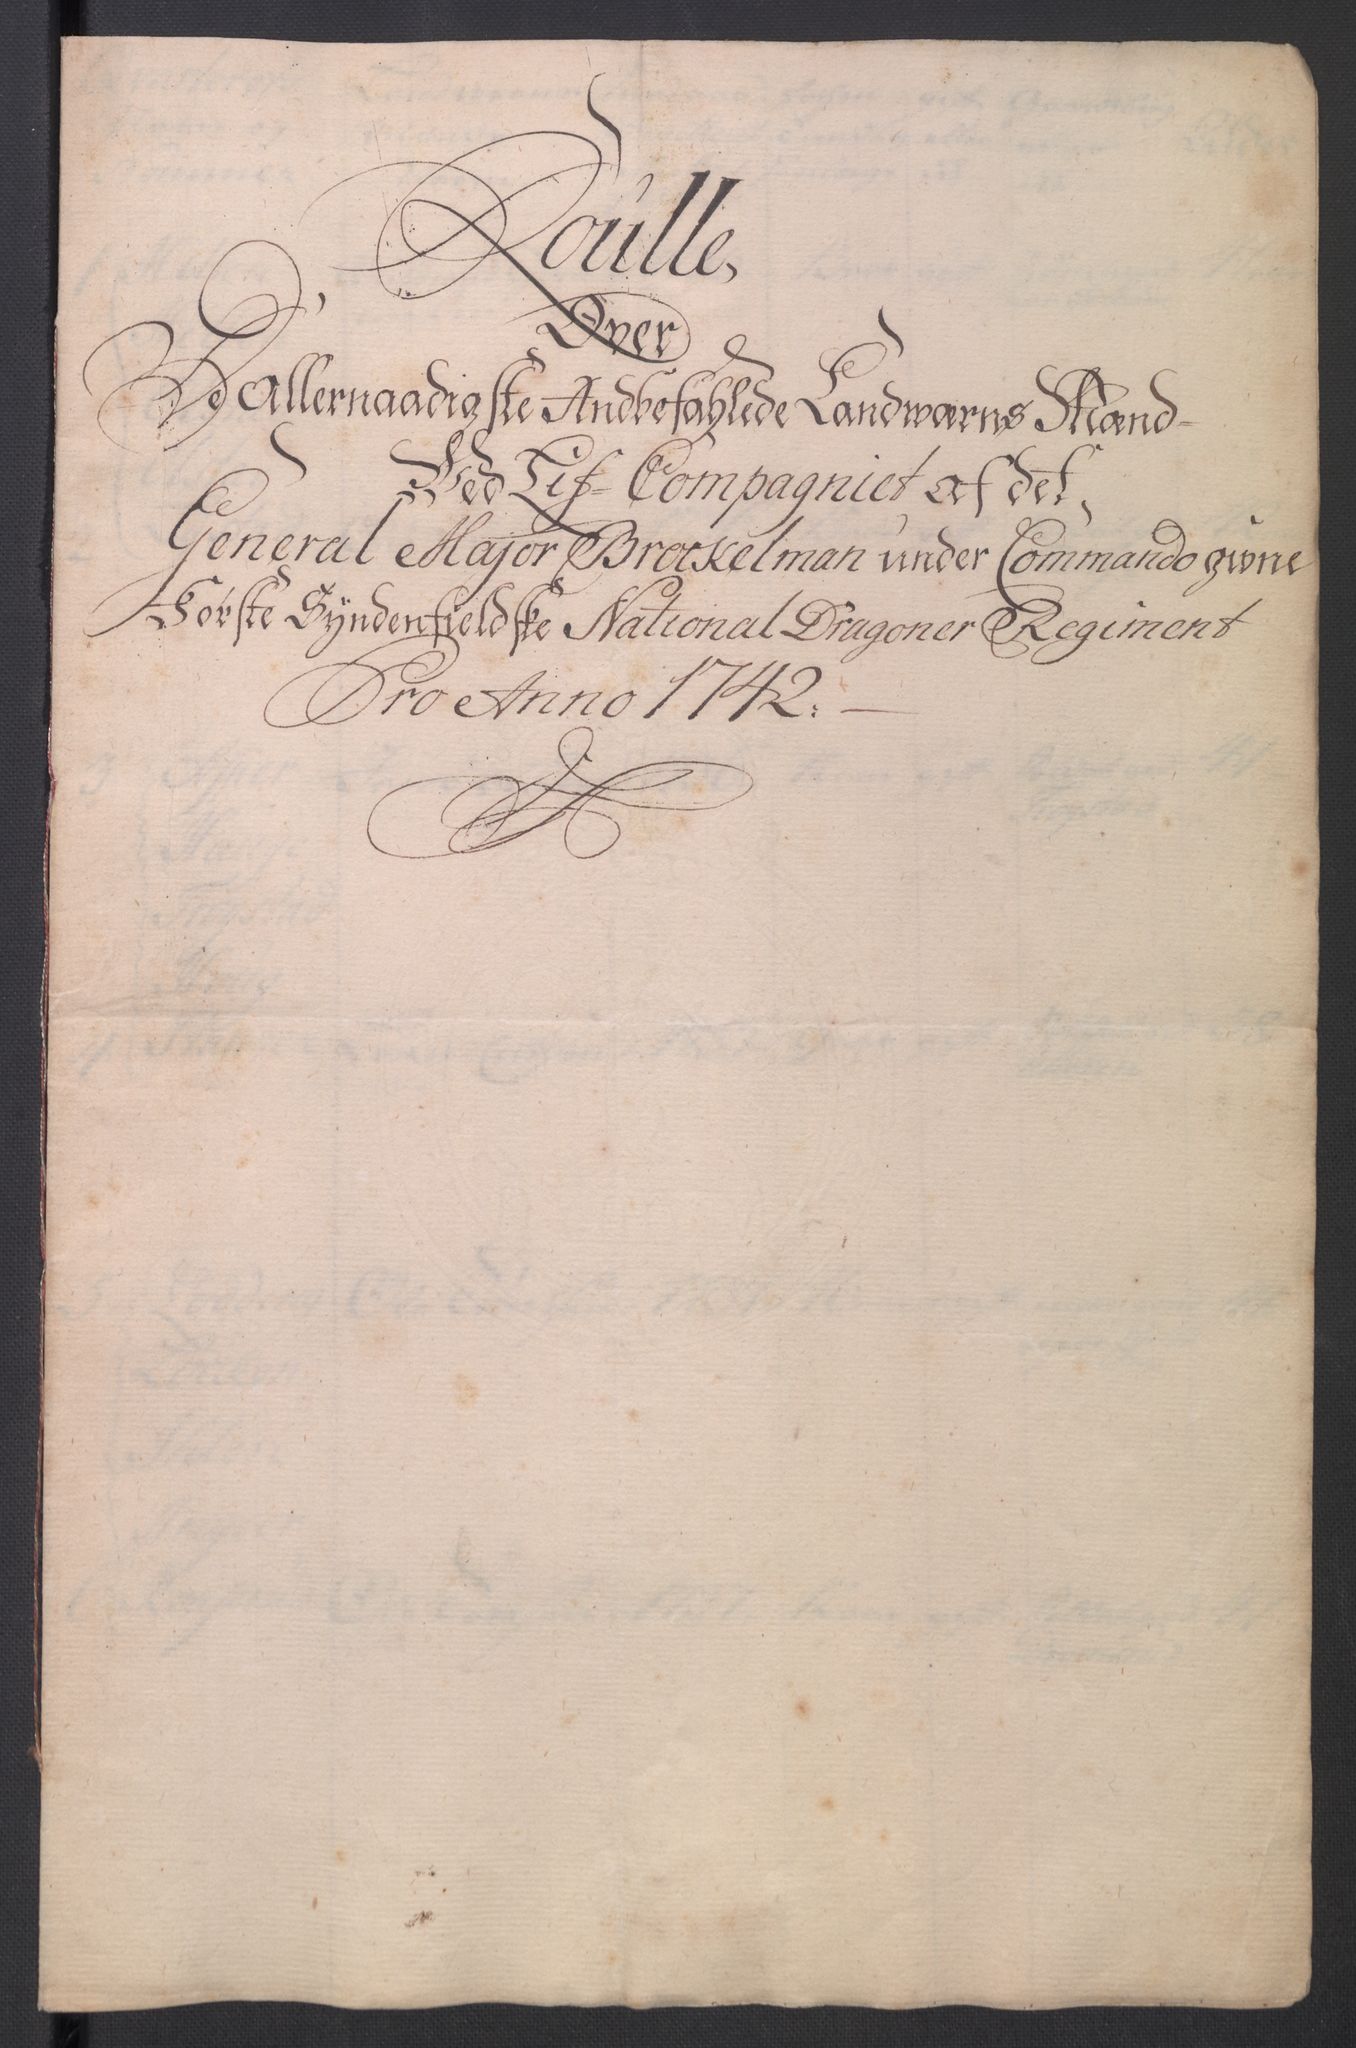 Roulle,
Over
De Allernaadigste Andbefahlede Landwærns Mænd-
Wed Lif- Compagniet af det,
General Major Brockelman under Commando givne
Første Syndenfieldske National Dragoner Regiment
Pro Anno 1742: